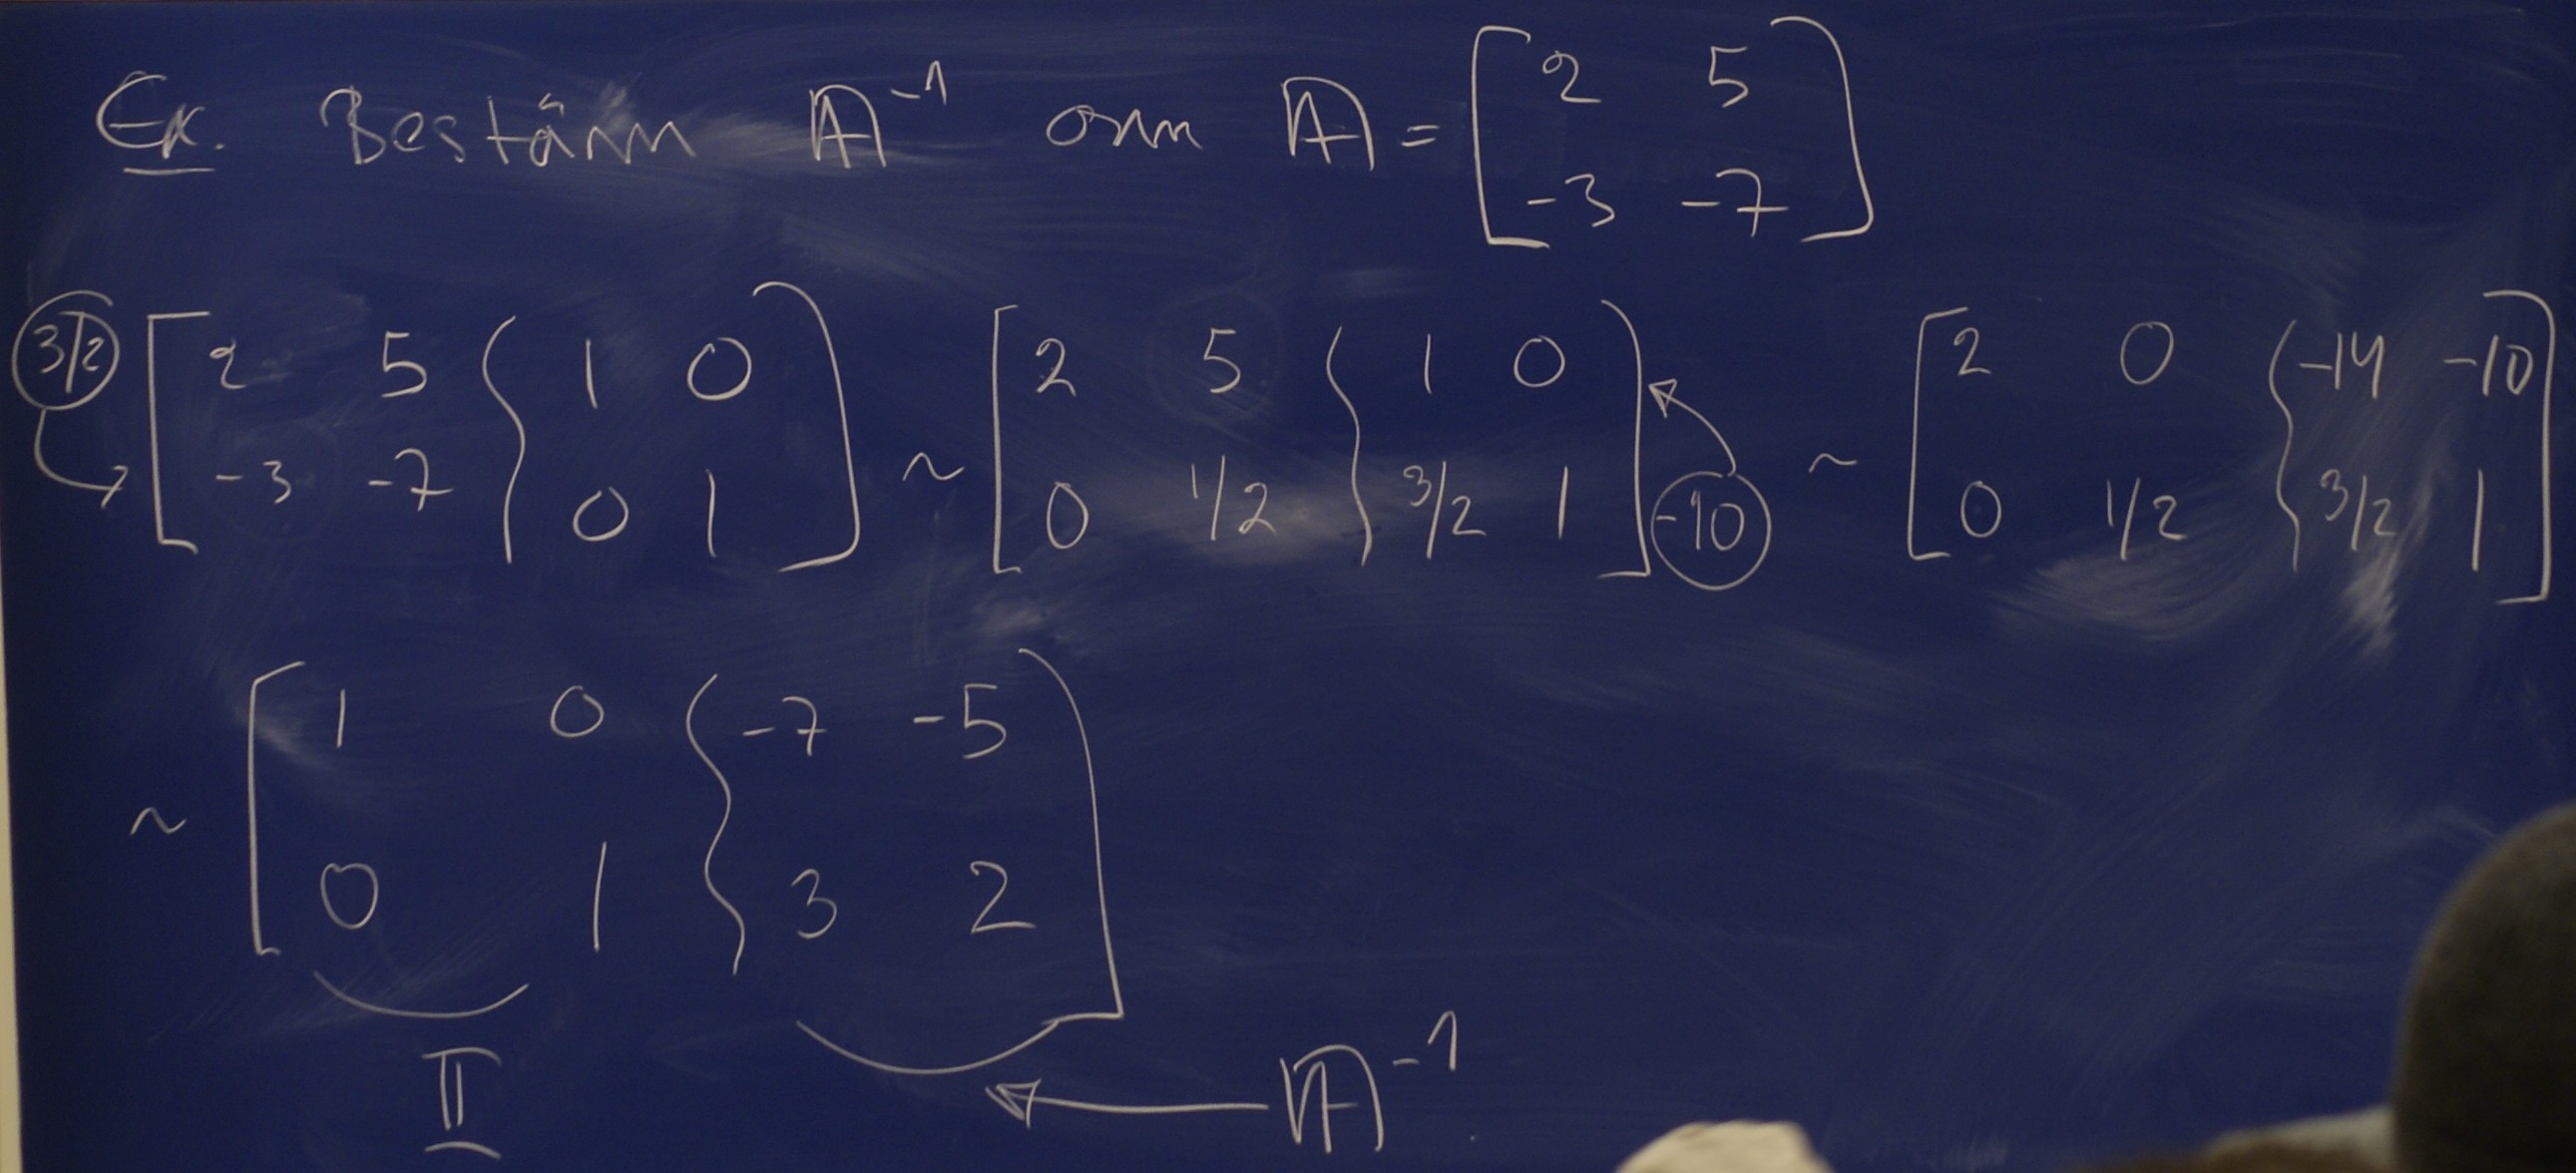 Ex. Bestäm A⁻¹ om A = [2 5; -3 -7]
(3/2) [2 5 { 1 0; -3 -7 { 0 1] ~ [2 5 { 1 0; 0 1/2 { 3/2 1] (-10) ~ [2 0 { -14 -10; 0 1/2 { 3/2 1]
~ [1 0 { -7 -5; 0 1 { 3 2]
I ← A⁻¹